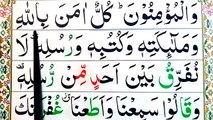 وَالْمُؤْمِنُوْنَ ؕ كُلٌّ اٰمَنَ بِاللّٰهِ
وَمَلٰٓئِكَتِهٖ وَكُتُبِهٖ وَرُسُلِهٖ ۟ لَا
نُفَرِّقُ بَيْنَ اَحَدٍ مِّنْ رُّسُلِهٖ ۟
وَقَالُوْا سَمِعْنَا وَاَطَعْنَا ؗ غُفْرَانَكَ